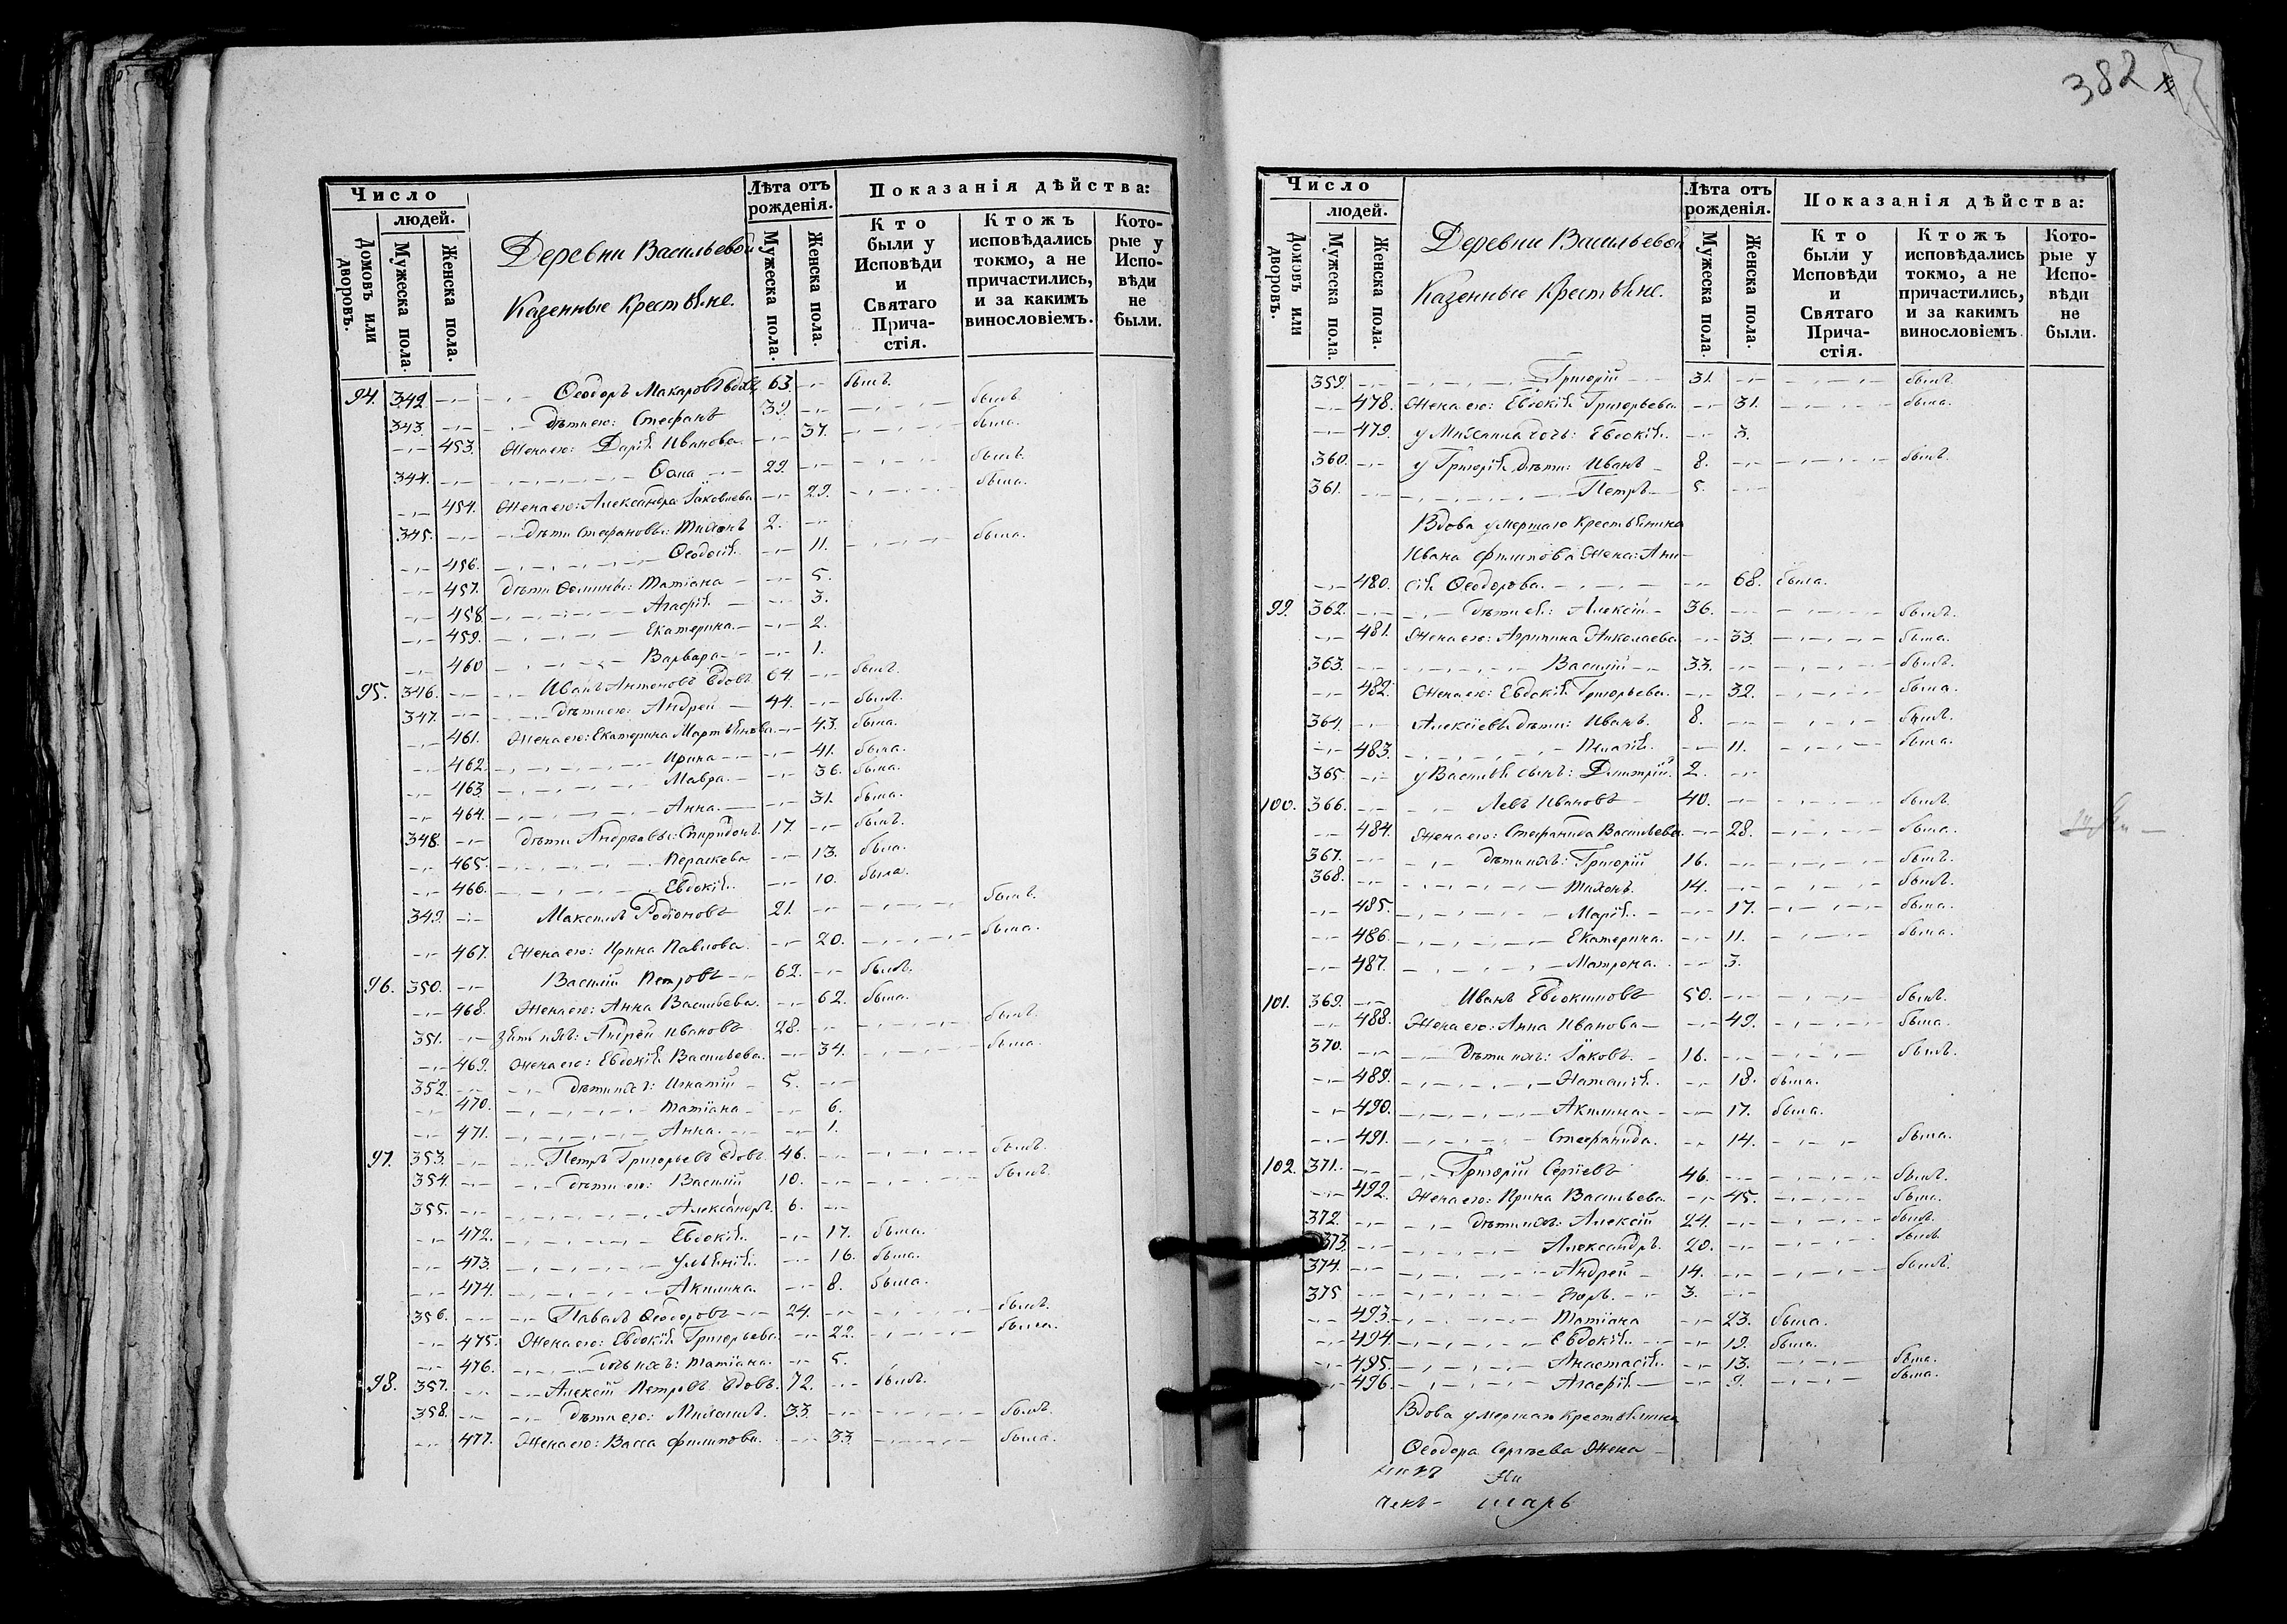 382
Число
людей.
Домовъ или дворовъ.
Мужеска пола.
Женска пола.
Деревни Васильевой
Казенные Крестьяне.
Лѣта отъ рожденія.
Мужеска пола.
Женска пола.
Показанія дѣйства:
Кто были у Исповѣди и Святаго Прича-стія.
Ктожъ исповѣдались токмо, а не причастились, и за какимъ винословіемъ.
Кото-рые у Испо-вѣди не были.
94. 342. Ѳеодоръ Макаровъ вдовъ 63 былъ.
343. дѣти его: Стефанъ 39. былъ.
453. Жена его: Дарія Иванова 37. была.
344. Ѳома 29. былъ.
454. Жена его: Александра Іаковлева 29. была.
345. дѣти Стефановы: Тихонъ 2.
456. Ѳеодосія 11. была.
457. дѣти Ѳомины: Татіана 5.
458. Агафія 3.
459. Екатерина 2.
460 Варвара 1.
95. 346. Иванъ Антоновъ вдовъ 64 былъ.
347. дѣти его: Андрей 44. былъ.
461. Жена его: Екатерина Мартьянова 43. была.
462. Ирина 41. была.
463. Мавра 36. была.
464. Анна. 31. была.
348. дѣти Андреевы: Спиридонъ. 17. былъ.
465. Параскева 13. была.
466. Евдокія. 10. была.
349. Максимъ Родіоновъ 21. былъ.
467. Жена его: Ирина Павлова. 20. была.
96. 350. Василій Петровъ 62. былъ.
468. Жена его: Анна Васильева. 62. была.
351. Зять ихъ: Андрей Ивановъ 28. былъ.
469. Жена его: Евдокія Васильева. 34. была.
352. дѣти ихъ: Игнатій 5.
470. Татіана 6.
471. Анна. 1.
97. 353. Петръ Григорьевъ вдовъ. 46. былъ.
354. дѣти его: Василій 10. былъ
355. Александръ. 6.
472. Евдокія. 17. была.
473. Ульянія. 16. была.
474. Акилина. 8. была.
356. Павелъ Ѳеодоровъ 24. былъ.
475. Жена его: Евдокія Григорьева. 22. была.
476. дочь ихъ: Татіана. 5.
98. 357. Алексій Петровъ вдовъ. 72. былъ.
358. дѣти его: Михаилъ. 33. былъ.
477. Жена его: Васса Филипова. 33 была.
Число
людей.
Домовъ или дворовъ.
Мужеска пола.
Женска пола.
Деревни Васильевой
Казенные Крестьяне.
Лѣта отъ рожденія.
Мужеска пола.
Женска пола.
Показанія дѣйства:
Кто были у Исповѣди и Святаго Прича-стія.
Ктожъ исповѣдались токмо, а не причастились, и за какимъ винословіемъ
Кото-рые у Испо-вѣди не были.
359. Григорій 31. былъ.
478. Жена его: Евдокія Григорьева. 31. была.
479. у Михаила дочь: Евдокія. 3.
360. у Григорія дѣти: Иванъ 8. былъ.
361. Петръ 5.
Вдова умершаго крестьянина
Ивана Филипова Жена: Ани-
480. сія Ѳеодорова. 68. была.
99. 362. дѣти ея: Алексій 36. былъ.
481. Жена его: Агрипина Николаева 33. была.
363. Василій 33. былъ.
482. Жена его: Евдокія Григорьева. 32. была.
364. Алексіевы дѣти: Иванъ. 8. былъ.
483. Пелагія. 11. была.
365. у Василья сынъ: Димитрій. 2.
100. 366. Левъ Ивановъ 40. былъ.
484. Жена его: Стефанида Васильева. 28. была.
367. дѣти ихъ: Григорій 16. былъ.
368. Тихонъ. 14. былъ.
485. Марія. 17. была.
486. Екатерина. 11. была.
487. Матрона. 3.
101. 369. Иванъ Евдокимовъ 50. былъ.
488. Жена его: Анна Иванова 49. была.
370. дѣти ихъ: Іаковъ. 16. былъ.
489. Наталія. 18. была.
490. Акилина 17. была.
491. Стефанида. 14. была.
102. 371. Григорій Сергіевъ 46. былъ.
492. Жена его: Ирина Васильева. 45. была.
372. дѣти ихъ: Алексій 24. былъ.
373. Александръ. 20. былъ
374. Андрей 14. былъ.
375 Егоръ. 3.
493. Татіана 23. была.
494. Евдокія. 19. была.
495. Анастасія. 13. была.
496. Агафія. 9. была.
Вдова умершаго крестьянина
Ѳеодора Сергѣева Жена